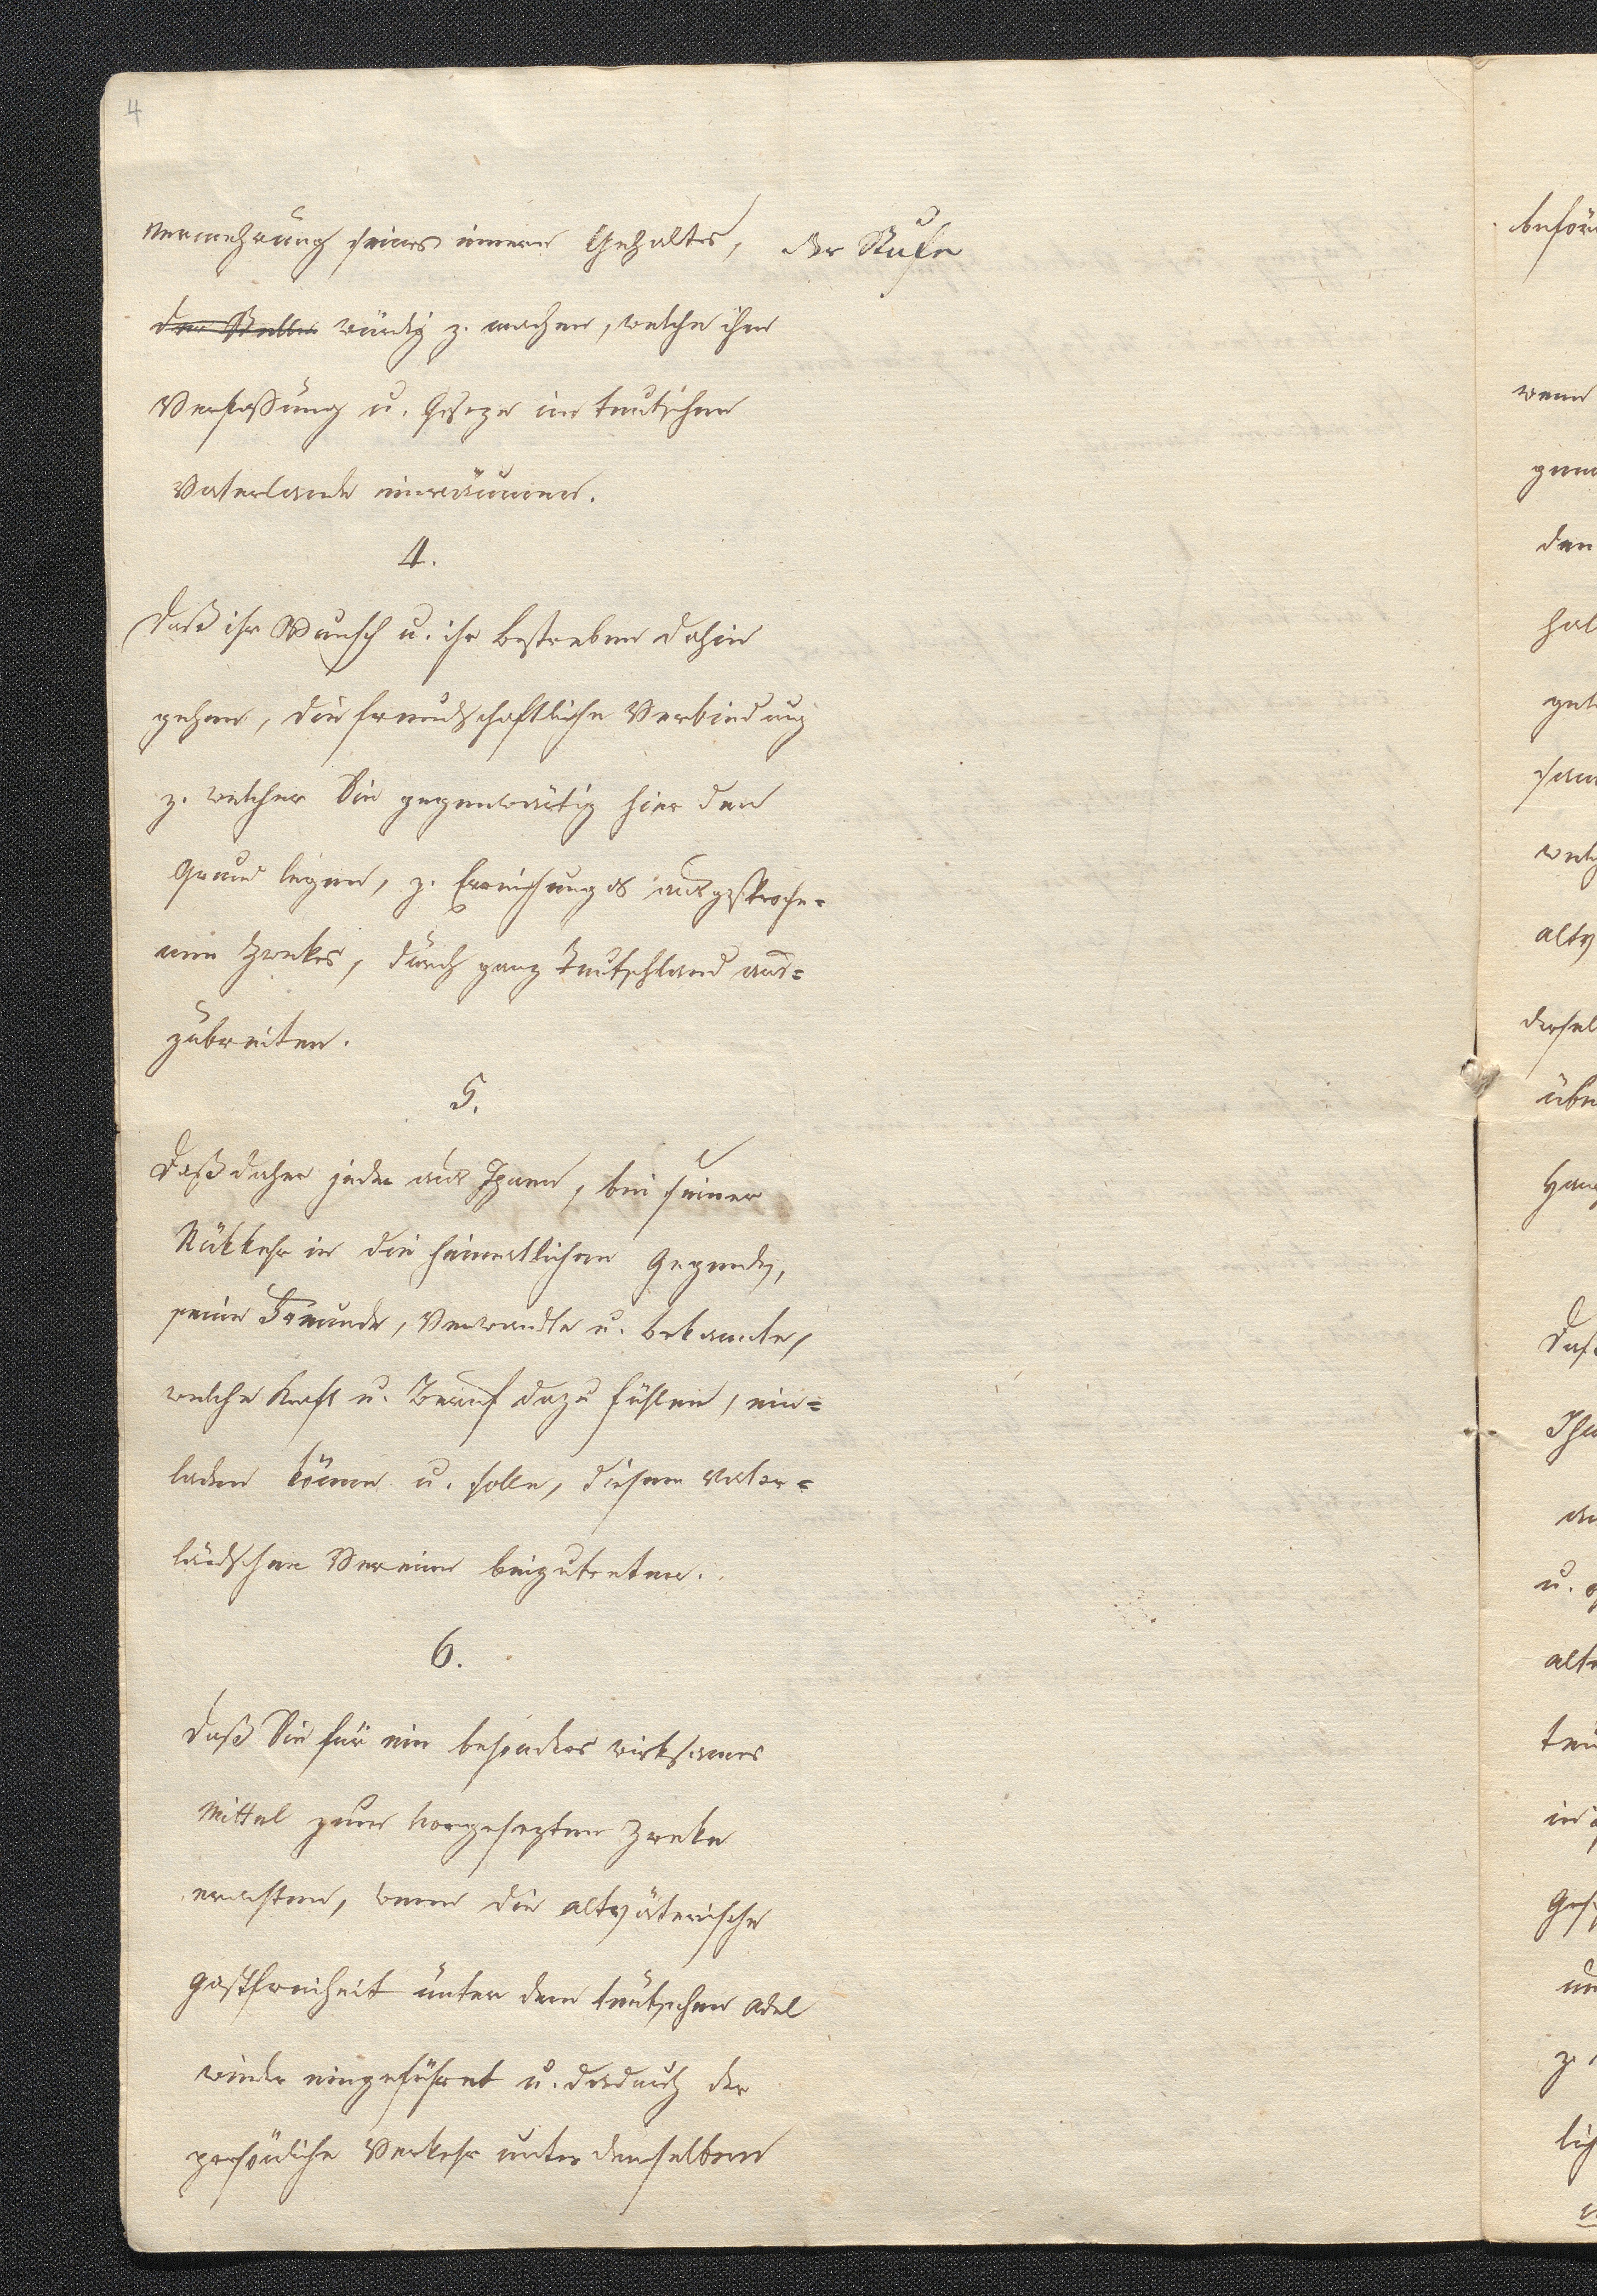 4
Vermehrung seines innern Gehaltes, der Stufe
der Stelle würdig z. machen, welche ihm
Verfassung u. Geseze im teutschen
Vaterlande einräumen.
4.
Daß ihr Wunsch u. ihr Bestreben dahin
gehen, die freundschaftliche Verbindung
z. welcher Sie gegenwärtig hier den
Grund legen, z. Erreichung des ausgesproche=
nen Zwekes, durch ganz Teutschland aus=
zubreiten.
5.
Daß daher jeder aus Ihnen, bei seiner
Rükkehr in die heimatlichen Gegenden,
seine Freunde, Verwandte u. Bekannte,
welche Kraft u. Beruf dazu fühlen, ein=
laden könne u. solle, diesem vater=
ländschen Vereine beizutreten.
6.
Daß Sie für ein besonders wirksames
Mittel zum vorgesezten Zweke
erachten, wenn die altväterische
Gastfreiheit unter dem teutschen Adel
wieder eingeführet u. dadurch der
persönliche Verkehr unter denselben
beför
wenn
den
über
Daß
u.